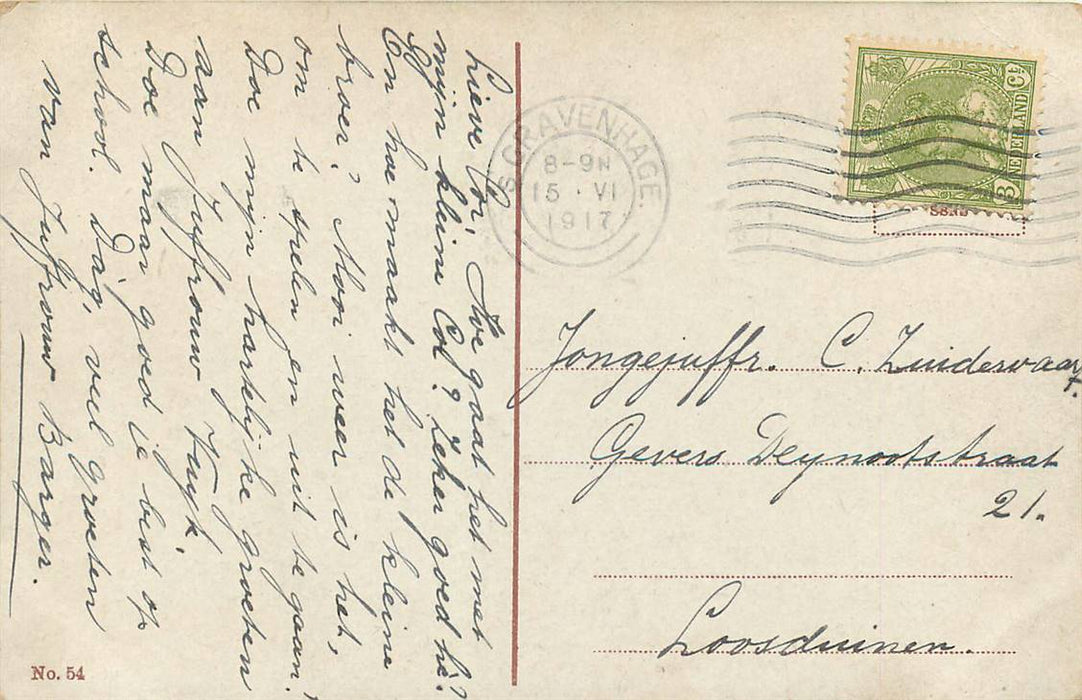 Lieve Cor, Hoe gaat het met
mijn kleine Col? Zeker goed hè?
En hoe maakt het de kleine
broer? Mooi weer is het,
om te spelen en uit te gaan!
Doe mijn hartelijke groeten
aan Juffrouw
Doe maar goed je best op
school. Dàg, veel groeten
van Juffrouw Barger.
No. 54
'S GRAVENHAGE.
8-9N
15 · VI
1917
NEDERLAND
3 Ct
5382
Jongejuffr. C. Zuiderwaart.
Gevers Deynootstraat
21.
Loosduinen.